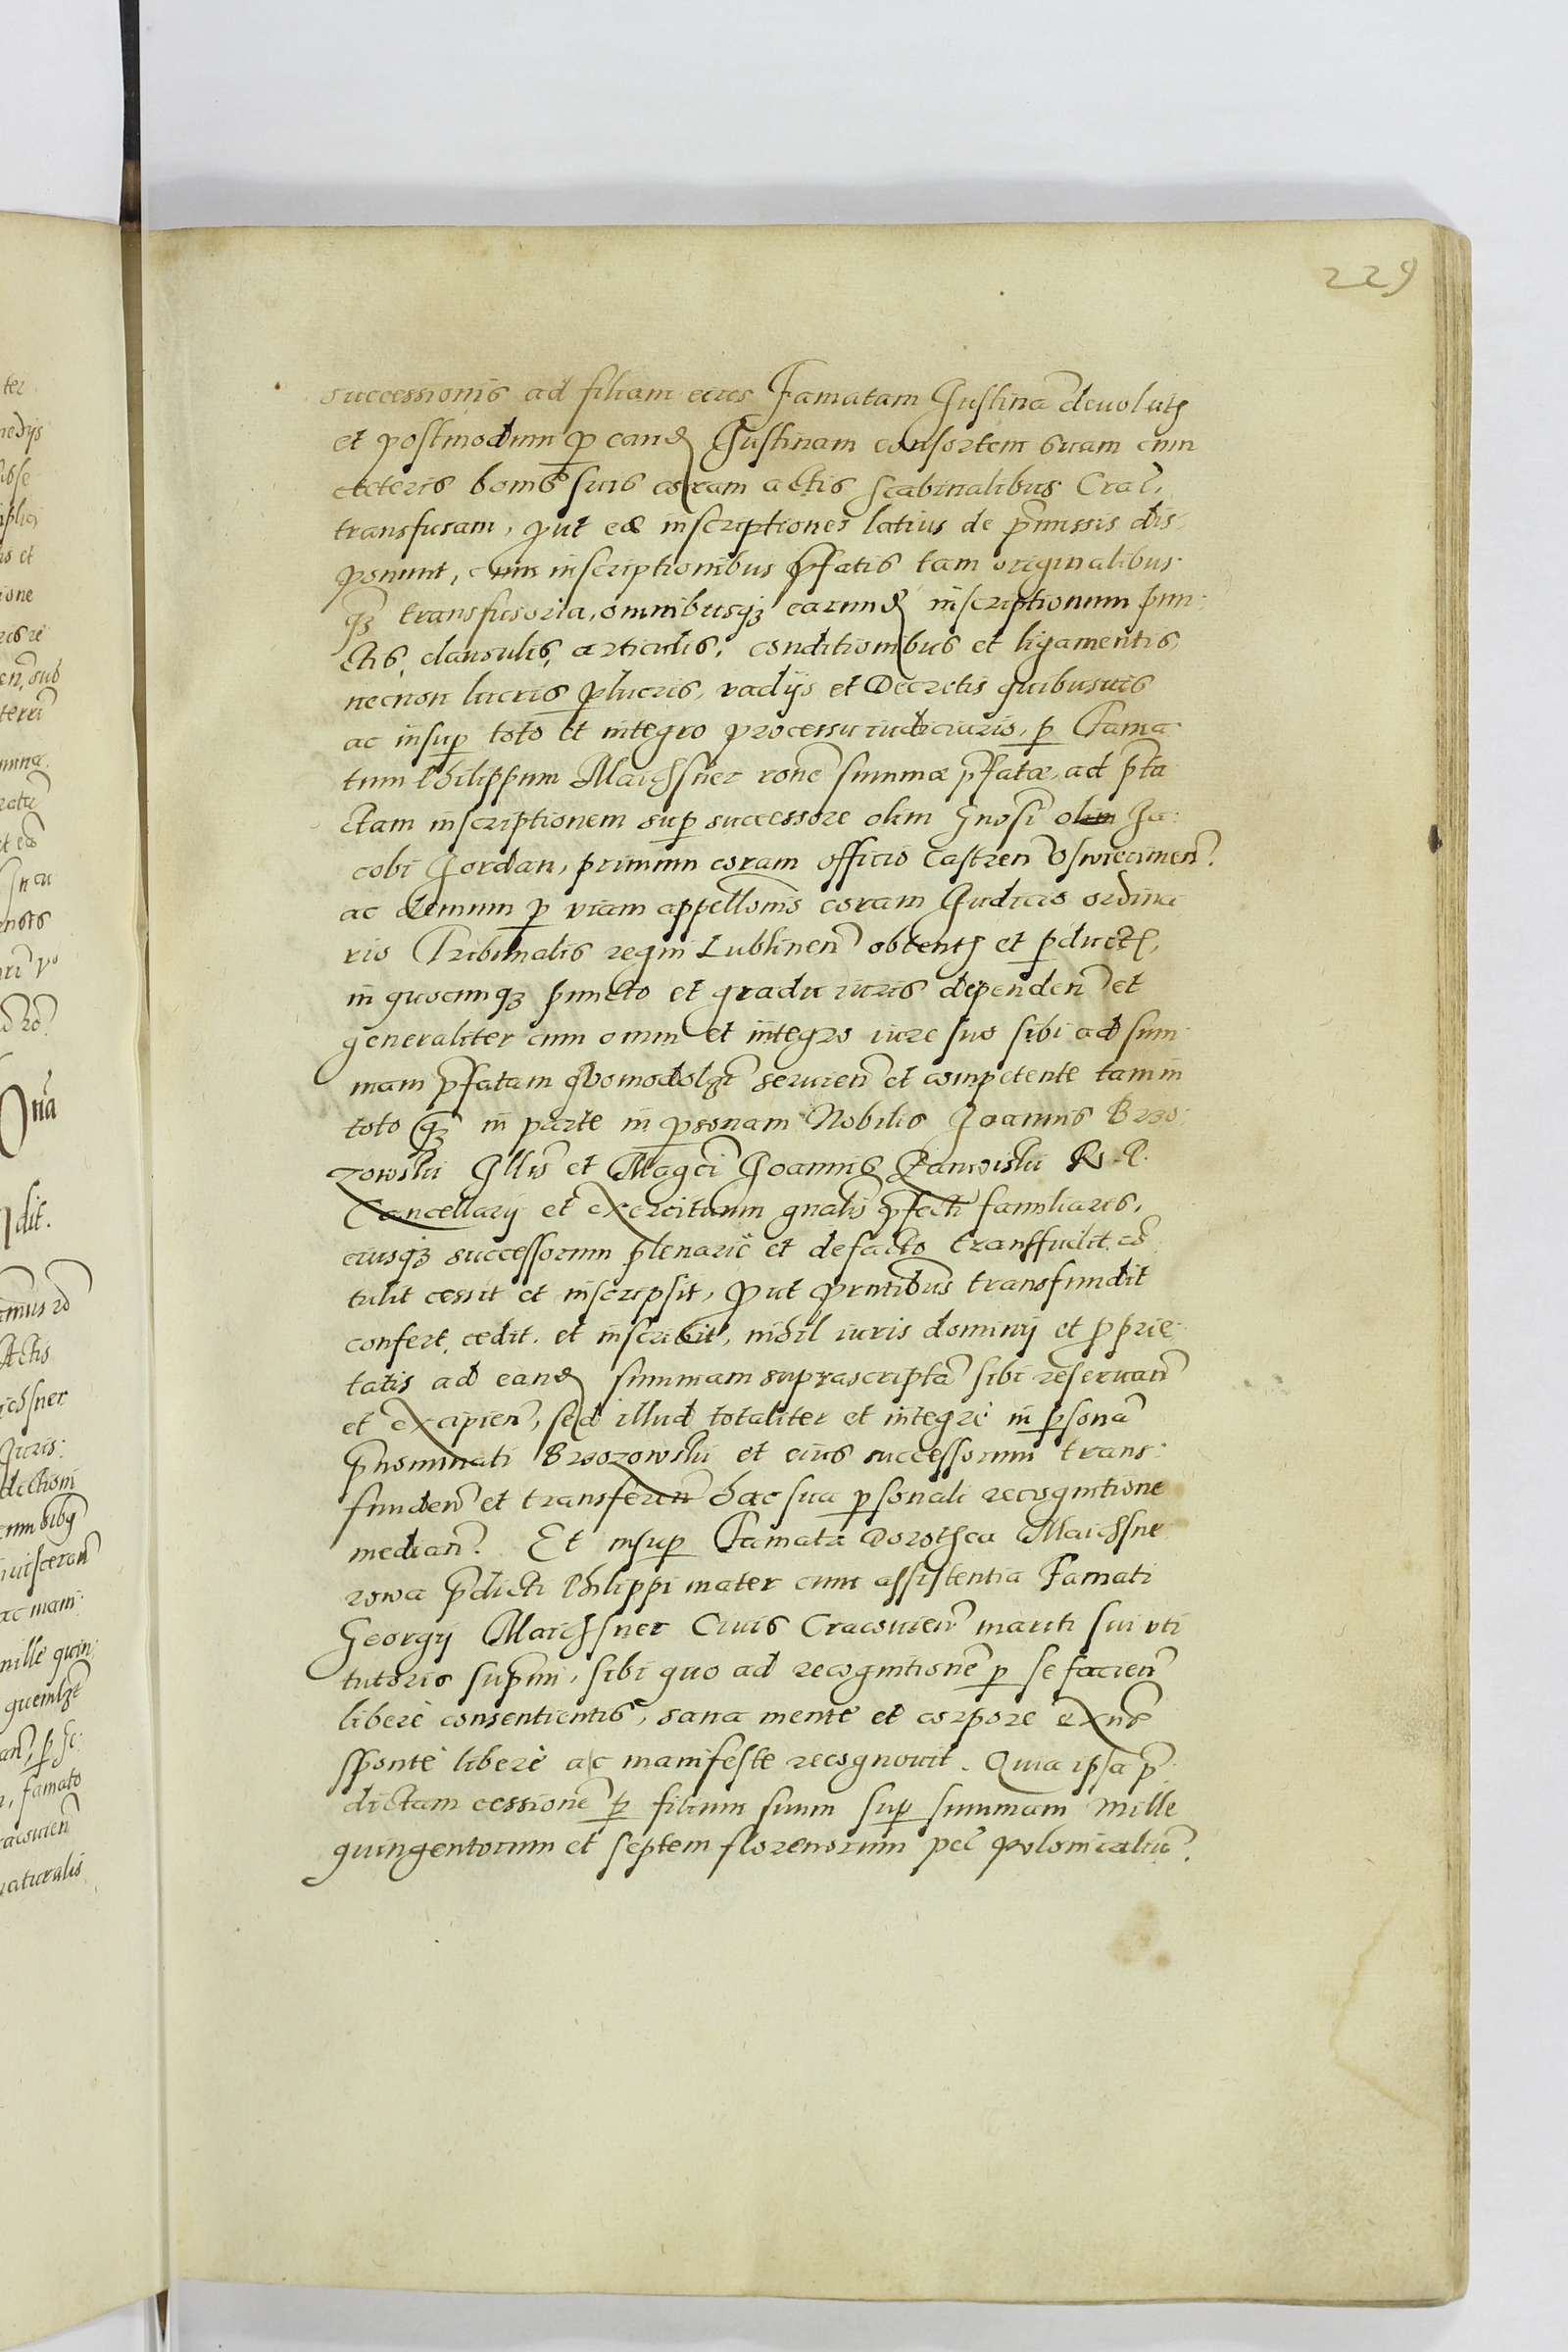 229
successionis ad filiam eius Famatam Justinã deuolutą
et postmodum p eand Justinam consortem suam cum
cæteris bonis suis coram actis scabinalibus Crac̃.
transfusam, put eæ inscriptiones latius de p̃missis dis
ponunt, cum inscriptionibus p̃fatis tam originalibus
qꝫ transfusoria, omnibusqꝫ earund inscriptionum pun:
ctis, clausulis, articulis, conditionibus et ligamentis,
necnon lucris plucris, vadijs et Decretis quibusuis
ac insup toto et integro processu iudiciario, p Fama
tum Philippum Maichsner rone summæ p̃fatæ, ad p̃ta
ctam inscriptionem sup successore olim Gnosi olim Ja:
cobi Jordan, primum coram officio Castren̄ Oswiecimen̄.
ac demum p viam appellõnis coram Judicio ordina
rio Tribunalis regni Lublinen̄ obtent et pduct,
in quocunqꝫ puncto et gradu iuris dependen̄ et
generaliter cum omni et integro iure suo sibi ad sum
mam p̃fatam quomodolꝫt seruien̄ et competente tam in
toto qꝫ in parte in psonam Nobilis Joannis Brzo:
zowski Illis et Magci Joannis Zamoiski R. P.
Cancellarij et exercituum gnalis p̃fecti familiaris,
eiusqꝫ successorum plenariè et defacto transfudit, cõ
tulit cessit et inscripsit, put pntibus transfundit
confert, cedit, et inscribit, nihil iuris dominij et pprie
tatis ad eand summam suprascriptã sibi reseruan̄
et excipien̄, sed illud totaliter et integrè in psonã
p̃nominati Brzozowski et eius successorum trans:
funden̄ et transferen̄ hac sua psonali recognitione
median̄. Et insup Famata Dorothea Maichsne
rowa p̃dicti Philippi mater cum assistentia Famati
Georgij Maichsner Ciuis Cracouien̄ mariti sui vti
tutoris sup̃mi, sibi quo ad recognitionẽ p se facien̄
liberè consentientis, sana mente et corpore exñs
sponte liberè ac manifeste recognouit. Quia ipsa p̃
dictam cessionẽ p filium suum sup summam mille
quingentorum et septem florenorum pec̃ polonicaliũ.